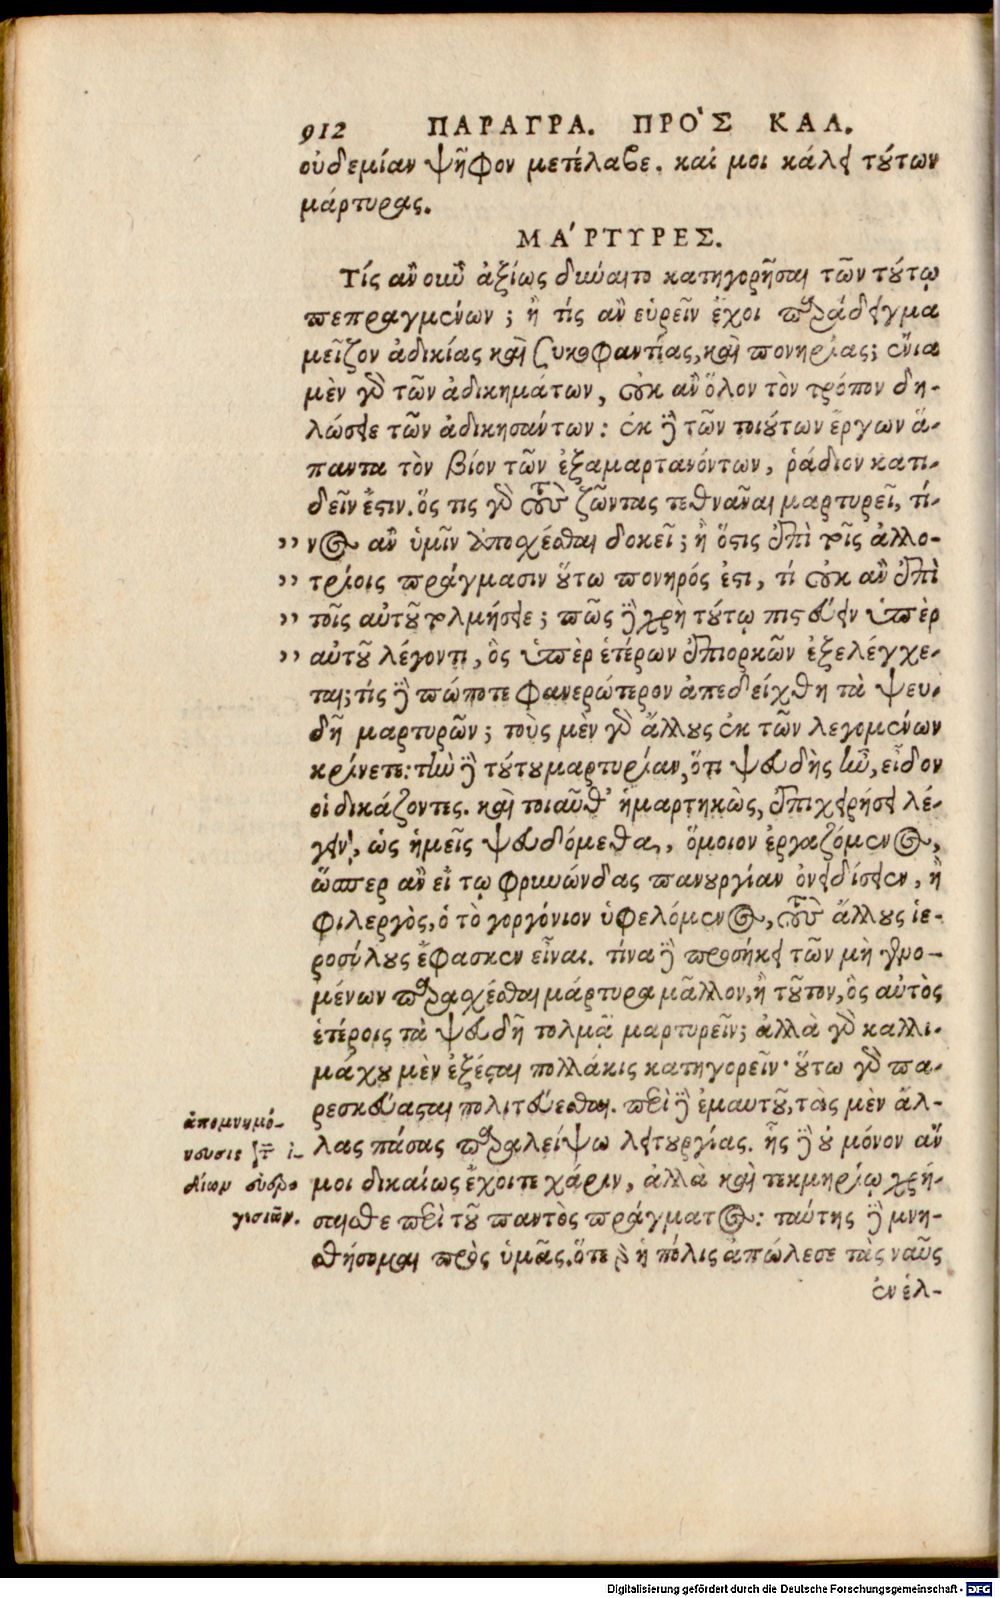 912 ΠΑΡΑΓΡΑ. ΠΡΟ`Σ ΚΑΛ.
οὐδεμίαν ψῆφον μετέλαβε. καί μοι κάλει τούτων
μάρτυρας.
ΜΑ´ΡΤΥΡΕΣ.
Τίς ἂν οὖν ἀξίως δύναιτο κατηγορῆσαι τῶν τούτῳ
πεπραγμένων; ἢ τίς ἂν εὑρεῖν ἔχοι παράδειγμα
μεῖζον ἀδικίας καὶ συκοφαντίας, καὶ πονηρίας; ἔνια
μὲν γὰρ τῶν ἀδικημάτων, οὐκ ἂν ὅλον τὸν τρόπον δη-
λώσειε τῶν ἀδικησάντων: ἐκ δὲ τῶν τοιούτων ἔργων ἅ-
παντα τὸν βίον τῶν ἐξαμαρτανόντων, ῥάδιον κατι-
δεῖν ἔστιν. ὅς τις γὰρ τοὺς ζῶντας τεθνᾶναι μαρτυρεῖ, τί-
,, νος ἂν ὑμῖν ἀποσχέσθαι δοκεῖ; ἢ ὅστις ἐπὶ τοῖς ἀλλο-
,, τρίοις πράγμασιν οὕτω πονηρός ἐστι, τί οὐκ ἂν ἐπὶ
,, τοῖς αὑτοῦ τολμήσειε; πῶς δὲ χρὴ τούτῳ πιστεύειν ὑπὲρ
,, αὑτοῦ λέγοντι, ὃς ὑπὲρ ἑτέρων ἐπιορκῶν ἐξελέγχε-
ται; τίς δὲ πώποτε φανερώτερον ἀπεδείχθη τὰ ψευ-
δῆ μαρτυρῶν; τοὺς μὲν γὰρ ἄλλους ἐκ τῶν λεγομένων
κρίνετε: τὴν δὲ τούτου μαρτυρίαν, ὅτι ψευδὴς ἦν, εἶδον
οἱ δικάζοντες. καὶ τοιαῦθ’ ἡμαρτηκὼς, ἐπιχειρήσει λέ-
γειν, ὡς ἡμεῖς ψευδόμεθα, ὅμοιον ἐργαζόμενος,
ὥσπερ ἂν εἴ τῳ φρυνώνδας πανουργίαν ὀνειδίσειεν, ἢ
φιλεργὸς, ὁ τὸ γοργόνιον ὑφελόμενος, τοὺς ἄλλους ἱε-
ροσύλους ἔφασκεν εἶναι. τίνα δὲ προσήκει τῶν μὴ γενο-
μένων παρασχέσθαι μάρτυρα μᾶλλον, ἢ τοῦτον, ὃς αὐτὸς
ἑτέροις τὰ ψευδῆ τολμᾷ μαρτυρεῖν; ἀλλὰ γὰρ καλλι-
μάχου μὲν ἐξέσται πολλάκις κατηγορεῖν· οὕτω γὰρ πα-
ρεσκεύασται πολιτεύεσθαι. περὶ δὲ ἐμαυτοῦ, τὰς μὲν ἄλ-
λας πάσας παραλείψω λειτουργίας. ἧς δὲ οὐ μόνον ἄν
μοι δικαίως ἔχοιτε χάριν, ἀλλὰ καὶ τεκμηρίῳ χρή-
σαισθε περὶ τοῦ παντὸς πράγματος: ταύτης δὲ μνη-
σθήσομαι πρὸς ὑμᾶς. ὅτε γὰρ ἡ πόλις ἀπώλεσε τὰς ναῦς
ἐν ἑλ-
ἀπομνημό-
νευσις τῶν ἰ-
δίων εὐερ
γεσιῶν.
Digitalisierung gefördert durch die Deutsche Forschungsgemeinschaft - DFG